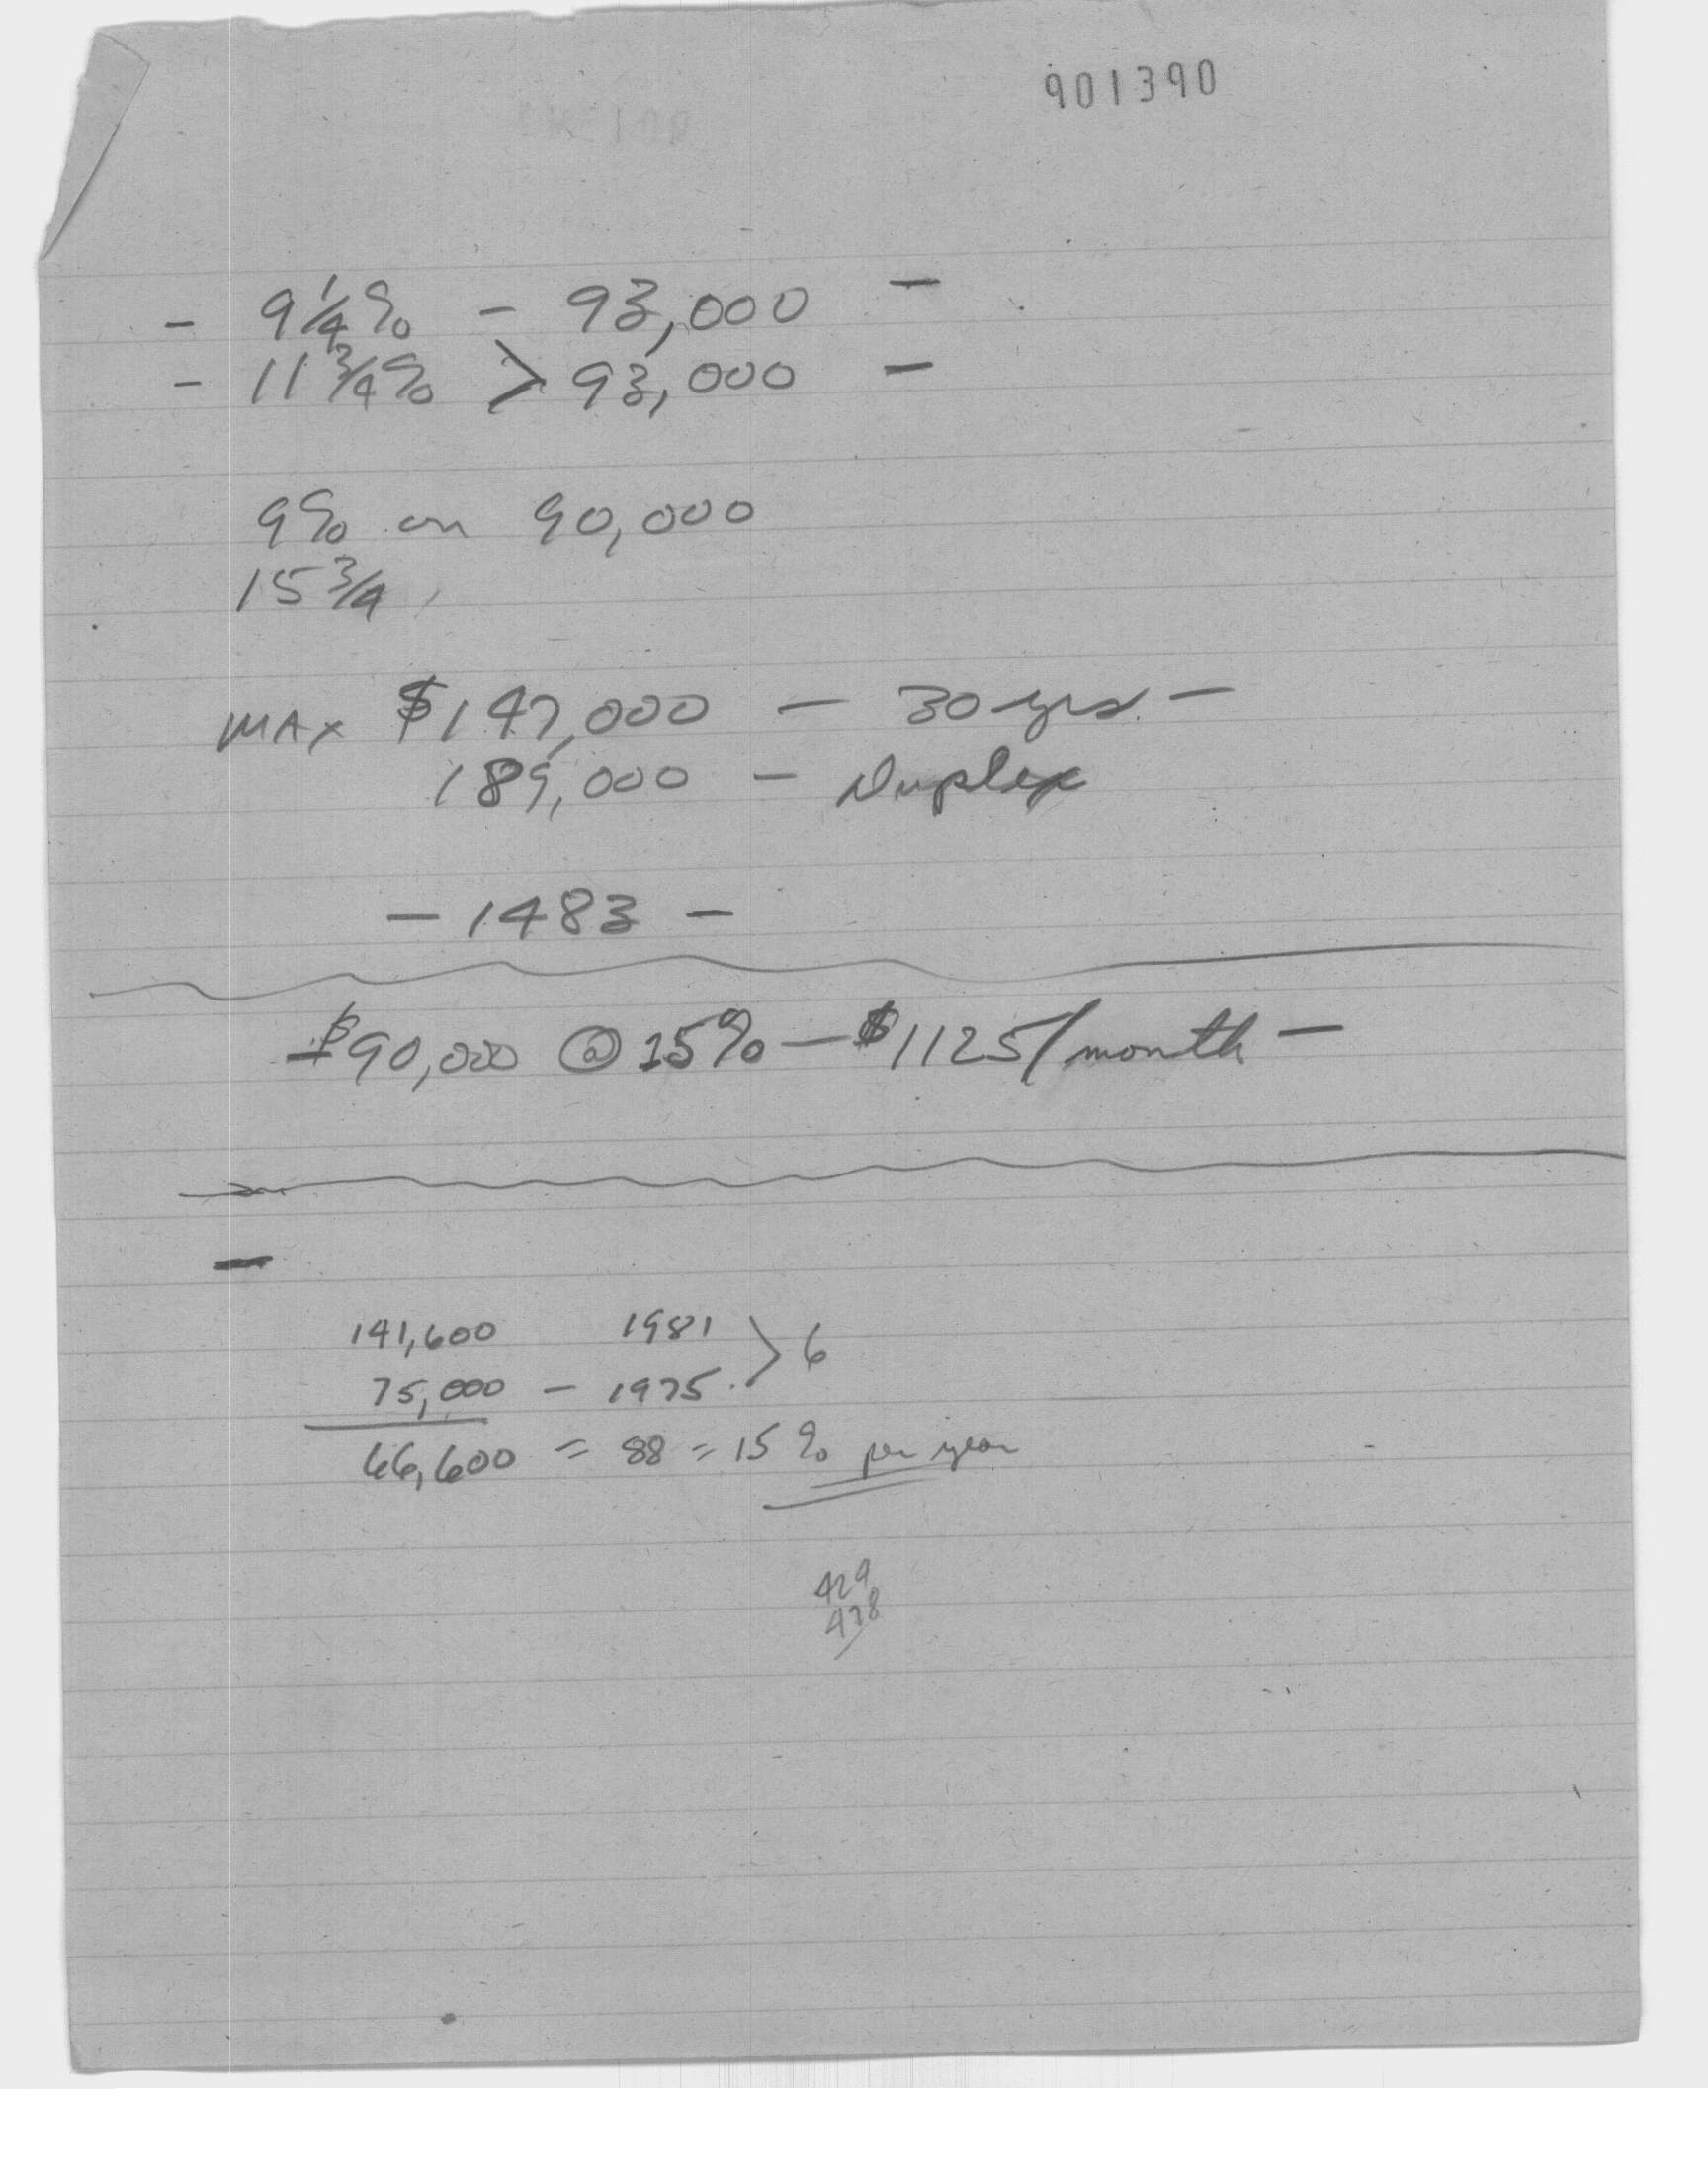 901390
- 9 1/4 % - 93,000 -
- 11 3/4 % > 93,000 -
9% on 90,000
15 3/4
MAX $147,000 - 30 yrs. -
189,000 - Duplex
- 1483 -
$90,000 @ 15% - $1125/month -
-
141,600 1981 > 6
75,000 - 1975.
66,600 = 88 = 15% per year
429